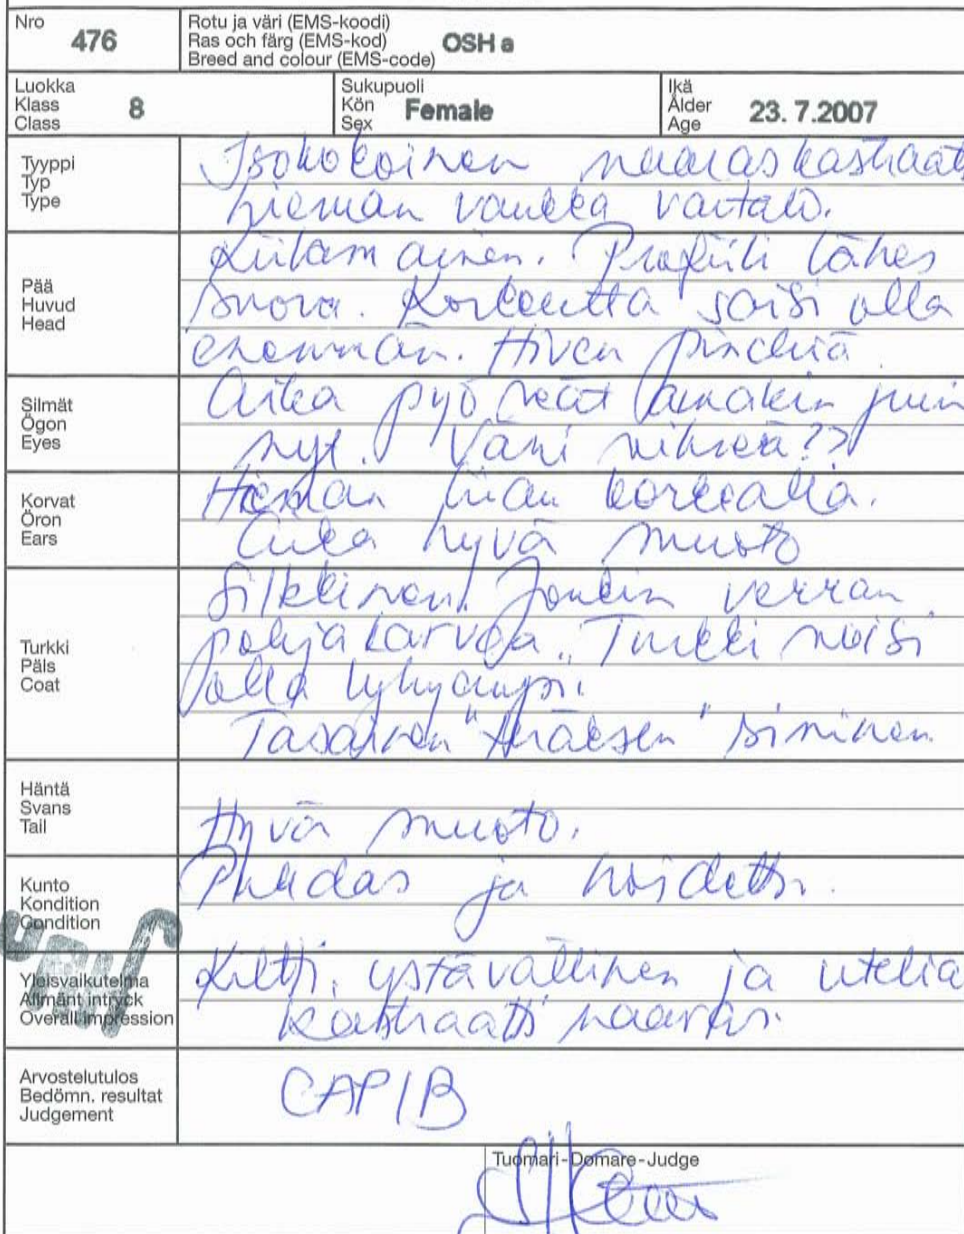 Nro 476
Rotu ja väri (EMS-koodi)
Ras och färg (EMS-kod) OSH a
Breed and colour (EMS-code)
Luokka
Klass 8
Class
Sukupuoli
Kön Female
Sex
Ikä
Ålder 23. 7.2007
Age
Tyyppi
Typ
Type
Isokokoinen naaraskastraatti
hieman vankka vartalo.
Pää
Huvud
Head
Kiilamainen. Profiili lähes
suora. Korkeutta saisi olla
enemmän. Hiven pinchiä
Silmät
Ögon
Eyes
Aika pyöreät ainakin juuri
nyt. Väri vihreä??
Korvat
Öron
Ears
Hieman liian korkealla.
Aika hyvä muoto
Turkki
Päls
Coat
Silkkinen. Jonkin verran
pohjakarvaa. Turkki voisi
olla lyhyempi.
Tasainen " " sininen
Häntä
Svans
Tail
Hyvä muoto.
Kunto
Kondition
Condition
Puhdas ja hoidettu.
Yleisvaikutelma
Allmänt intryck
Overall impression
Kiltti, ystävällinen ja utelia
kastraatti naaras.
Arvostelutulos
Bedömn. resultat
Judgement
CAPIB
Tuomari-Domare-Judge